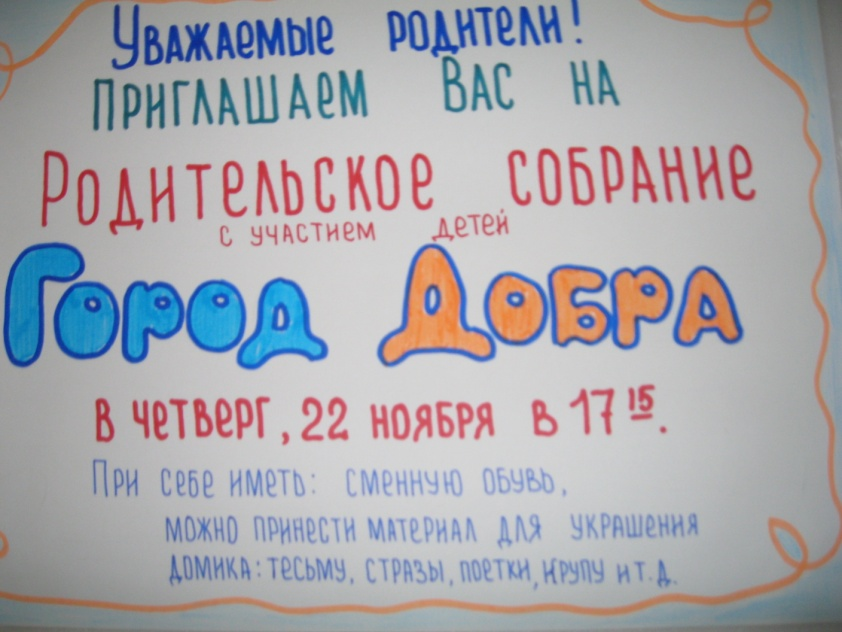 Уважаемые родители!
Приглашаем Вас на
Родительское собрание
с участием детей
Город Добра
в четверг, 22 ноября в 17 15.
При себе иметь: сменную обувь,
можно принести материал для украшения
домика: тесьму, стразы, поетки, крупу и т.д.